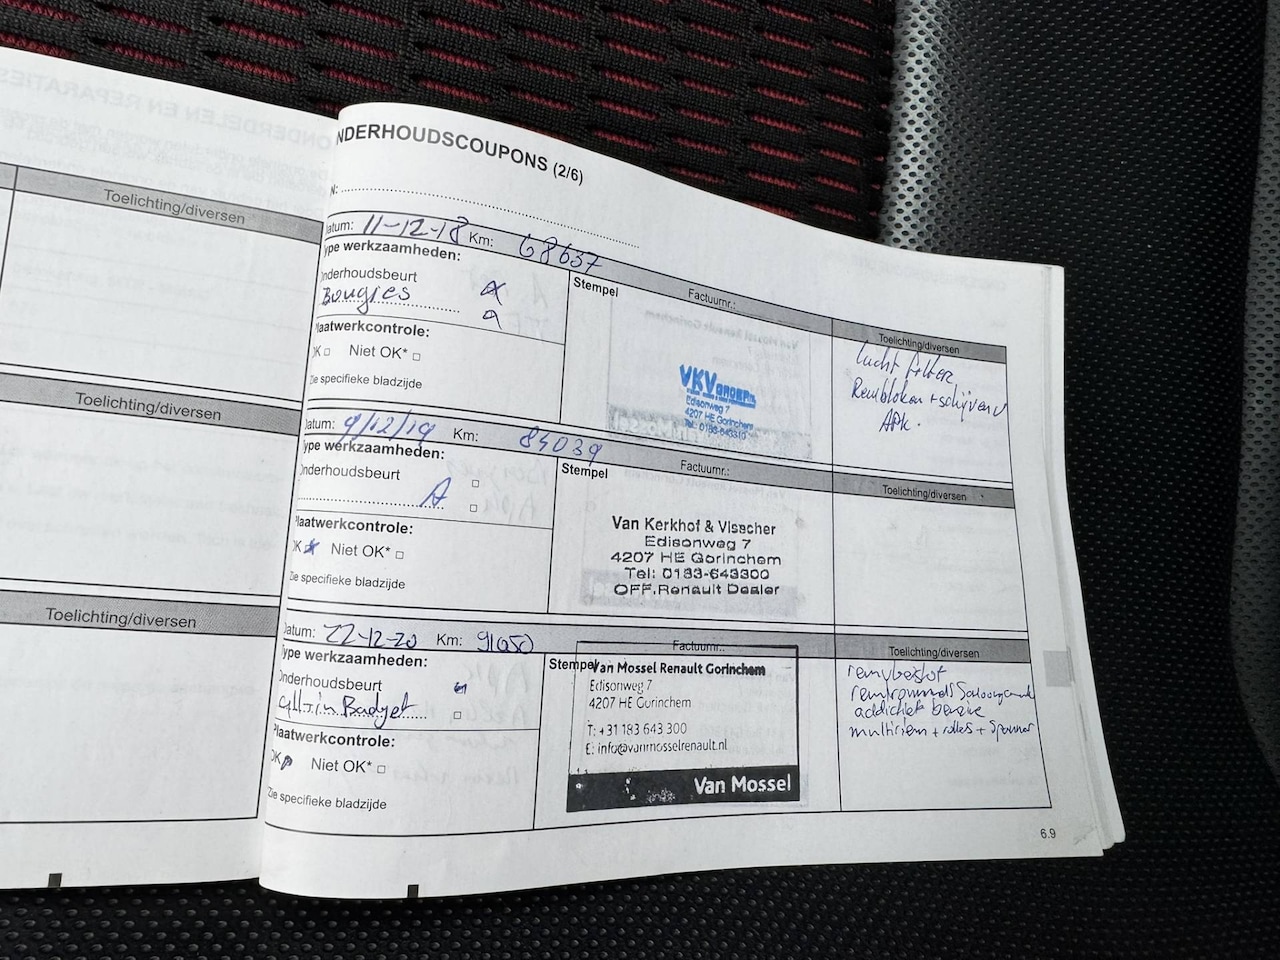 NDERHOUDSCOUPONS (2/6)
Toelichting/diversen
Toelichting/diversen
Toelichting/diversen
N:
atum: 11-12-18 Km: 68637
ype werkzaamheden:
nderhoudsbeurt
Bougies
laatwerkcontrole:
OK □ Niet OK* □
Zie specifieke bladzijde
Stempel
Factuurnr.:
VKV
Edisonweg 7
4207 HE Gorinchem
Toelichting/diversen
lucht filter
Remblokken + schijven
APK.
Datum: 9/12/19 Km: 84039
Type werkzaamheden:
Onderhoudsbeurt □
A □
Plaatwerkcontrole:
OK Niet OK* □
Zie specifieke bladzijde
Stempel
Factuurnr.:
Van Kerkhof & Visscher
Edisonweg 7
4207 HE Gorinchem
Tel: 0183-643300
OFF.Renault Dealer
Toelichting/diversen
Datum: 22-12-20 Km: 91050
Type werkzaamheden:
Onderhoudsbeurt
Budget □
Plaatwerkcontrole:
OK Niet OK* □
Zie specifieke bladzijde
Stempel
Factuurnr.:
Van Mossel Renault Gorinchem
Edisonweg 7
4207 HE Gorinchem
T: +31 183 643 300
E: info@vanmosselrenault.nl
Van Mossel
Toelichting/diversen
remvloeistof
multiriem + rollen + spanner
6.9